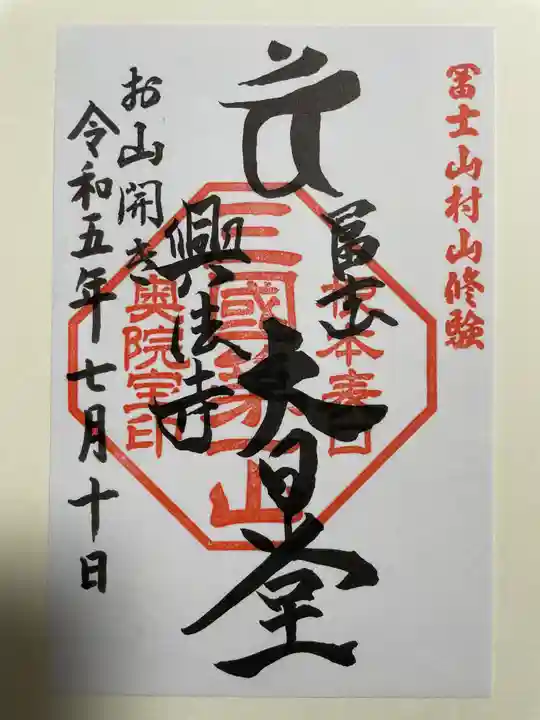 冨士山村山修験
冨士山
大日堂
興法寺
お山開き
令和五年七月十日
根本
三國第一山
奥院宝印